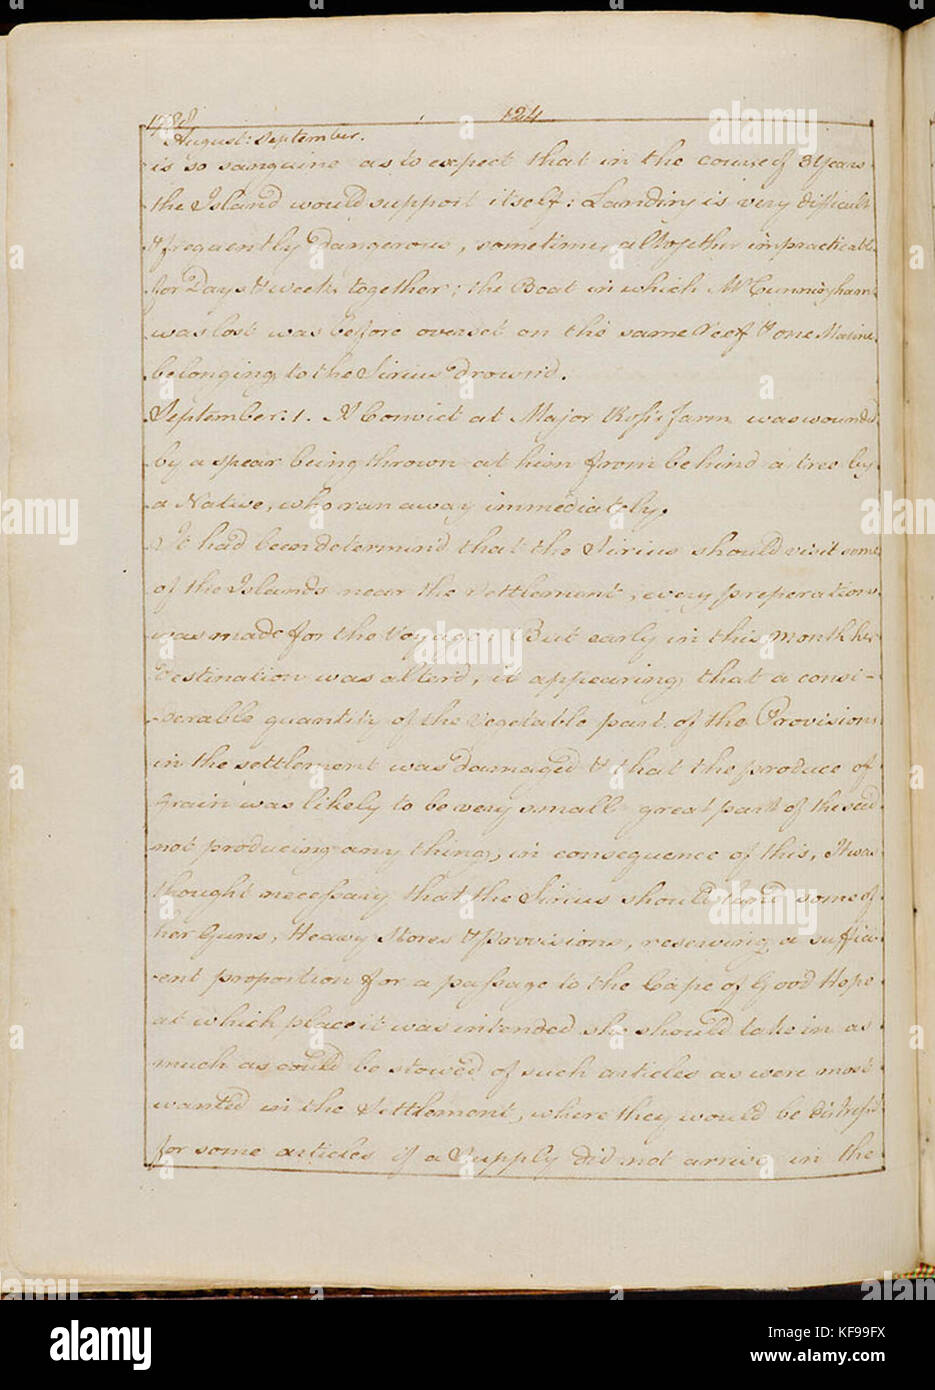 1788 124
August: September.
is so sanguine as to expect that in the course of 3 Years
the Island would support itself: Landing is very difficult
& frequently Dangerous, sometimes altogether impracticable
for Days & weeks together; the Boat in which Mr Cunningham
was lost was before overset on the same Reef & one Marine
belonging to the Sirius Drown'd.
September: 1. A Convict at Major Ross's farm was wounded
by a spear being thrown at him from behind a tree by
a Native, who ran away immediately.
It had been determin'd that the Sirius should visit some
of the Islands near the Settlement, every preperation
was made for the Voyage: But early in this Month her
Destination was alterd, it appearing that a consi-
-derable quantity of the vegetable part of the Provisions
in the settlement was Damaged & that the produce of
Grain was likely to be very small great part of the seed
not producing any thing, in consequence of this, It was
thought necessary that the Sirius should land some of
her Guns, Heavy Stores & provisions, reserving a suffici-
-ent proportion for a passage to the Cape of Good Hope
at which place it was intended she should take in as
much as could be stowed of such articles as were most
wanted in the Settlement, where they would be Distress'd
for some articles if a Supply did not arrive in the
alamy
Image ID: KF99FX
www.alamy.com